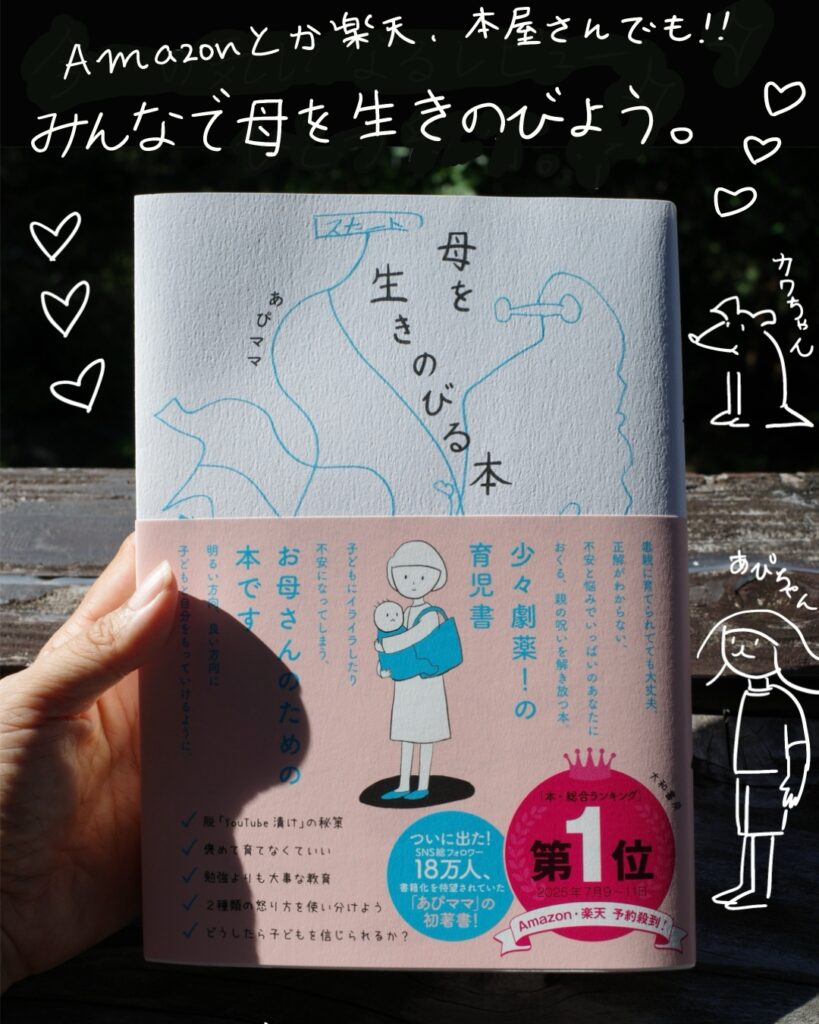 Amazonとか楽天、本屋さんでも!!
みんなで母を生きのびよう。
カワちゃん
スタート
母を
生きのびる本
あぴママ
あぴちゃん
毒親に育てられてても大丈夫。
正解がわからない、
不安と悩みでいっぱいのあなたに
おくる、親の呪いを解き放つ本。
少々劇薬!の
育児書
子どもにイライラしたり
不安になってしまう、
お母さんのための
本です。
明るい方向、良い方向に
子どもと自分をもっていけるように。
✓ 脱「YouTube漬け」の秘策
✓ 褒めて育てなくていい
✓ 勉強よりも大事な教育
✓ 2種類の怒り方を使い分けよう
✓ どうしたら子どもを信じられるか?
ついに出た!
SNS総フォロワー
18万人、
書籍化を待望されていた
「あぴママ」の
初著書!
大和書房
「本・総合ランキング」
第1位
2025年7月9〜11日
Amazon・楽天 予約殺到!